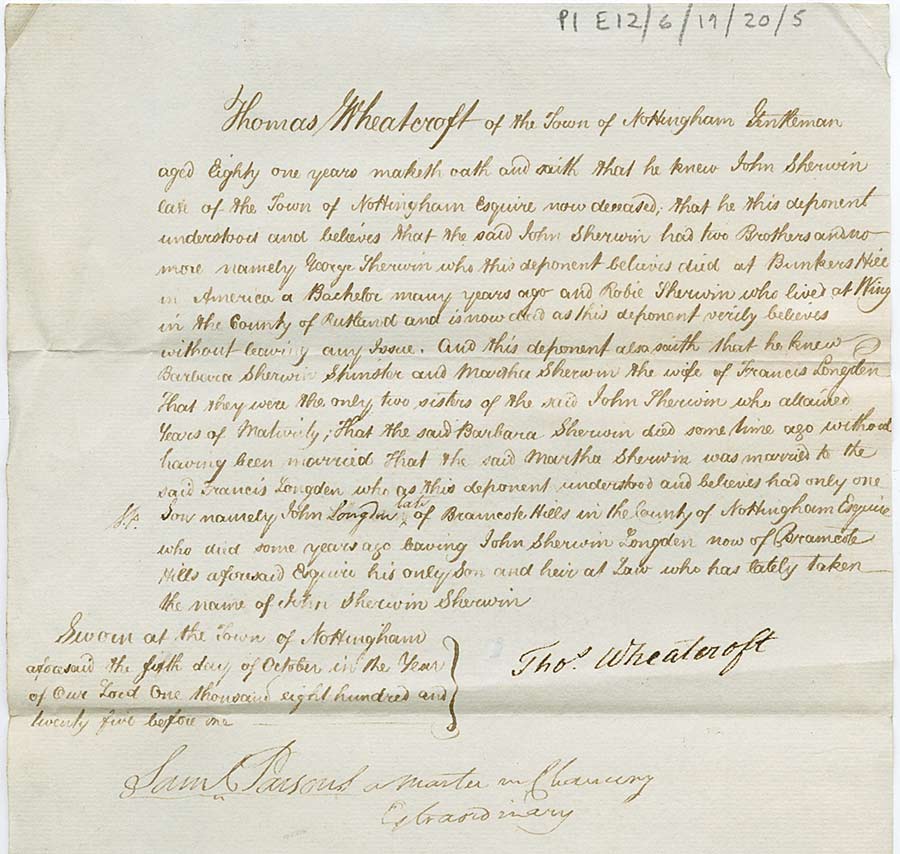 P1 E12/6/19/20/5
Thomas Wheatcroft of the Town of Nottingham Gentleman
aged Eighty one years maketh oath and saith that he knew John Sherwin
late of the Town of Nottingham Esquire now deceased; that he this deponent
understood and believes that the said John Sherwin had two Brothers and no
more namely George Sherwin who this deponent believes died at Bunkers Hill
in America a Bachelor many years ago and Robie Sherwin who lived at Wing
in the County of Rutland and is now dead as this deponent verily believes
without leaving any Issue. And this deponent also saith that he knew
Barbara Sherwin Spinster and Martha Sherwin the wife of Francis Longden
That they were the only two sisters of the said John Sherwin who attained
Years of Maturity; That the said Barbara Sherwin died some time ago without
having been married That the said Martha Sherwin was married to the
said Francis Longden who as this deponent understood and believes had only one
Son namely John Longden late of Bramcote Hills in the County of Nottingham Esquire
who died some years ago leaving John Sherwin Longden now of Bramcote
Hills aforesaid Esquire his only Son and heir at Law who has lately taken
the name of John Sherwin Sherwin
Sworn at the Town of Nottingham
aforesaid the fifth day of October in the Year
of Our Lord One thousand eight hundred and
twenty five before me
Thos. Wheatcroft
Saml Parsons a Master in Chancery
Extraordinary